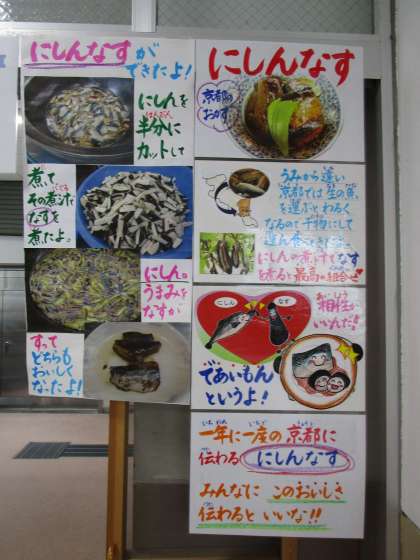 にしんなすが
できたよ!
にしんを
はんぶん
半分に
カットして
煮て
その煮汁で
なすを
煮たよ。
にしん。
うまみを
なすが
すって
どちらも
おいしく
なったよ!
にしんなす
京都の
おかず
うみから遠い
京都では生の魚
を運ぶとわるく
なるので干物にして
運ん
にしんの煮汁でなす
を煮ると最高の組合せ!
にしん
なす
あいしょう
相性が
いいんだ!!
であいもん
というよ!
いち ねん いちど きょうと
一年に一度の京都に
つた
伝わる にしんなす
みんなに このおいしさ
つた
伝わると いいな!!